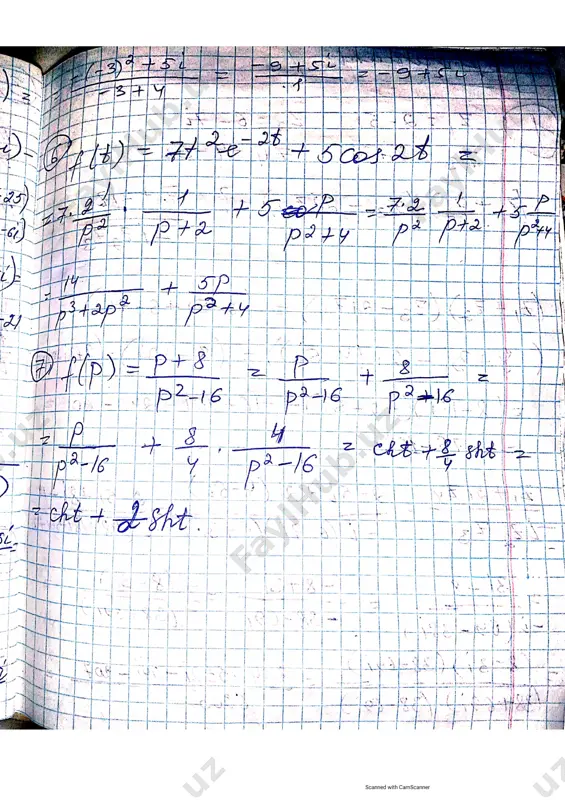 = (-3)² + 5i / -3+4 = -9+5i / 1 = -9+5i
⑥ f(t) = 7t²e^-2t + 5cos2t =
= 7 · 2! / p² · 1 / p+2 + 5 p / p²+4 = 7·2 / p² 1 / p+2 + 5 p / p²+4
= 14 / p³+2p² + 5p / p²+4
⑦ f(p) = p+8 / p²-16 = p / p²-16 + 8 / p²-16 =
= p / p²-16 + 8/4 · 4 / p²-16 = cht + 8/4 sht =
= cht + 2sht.
FaylHub.uz
Scanned with CamScanner